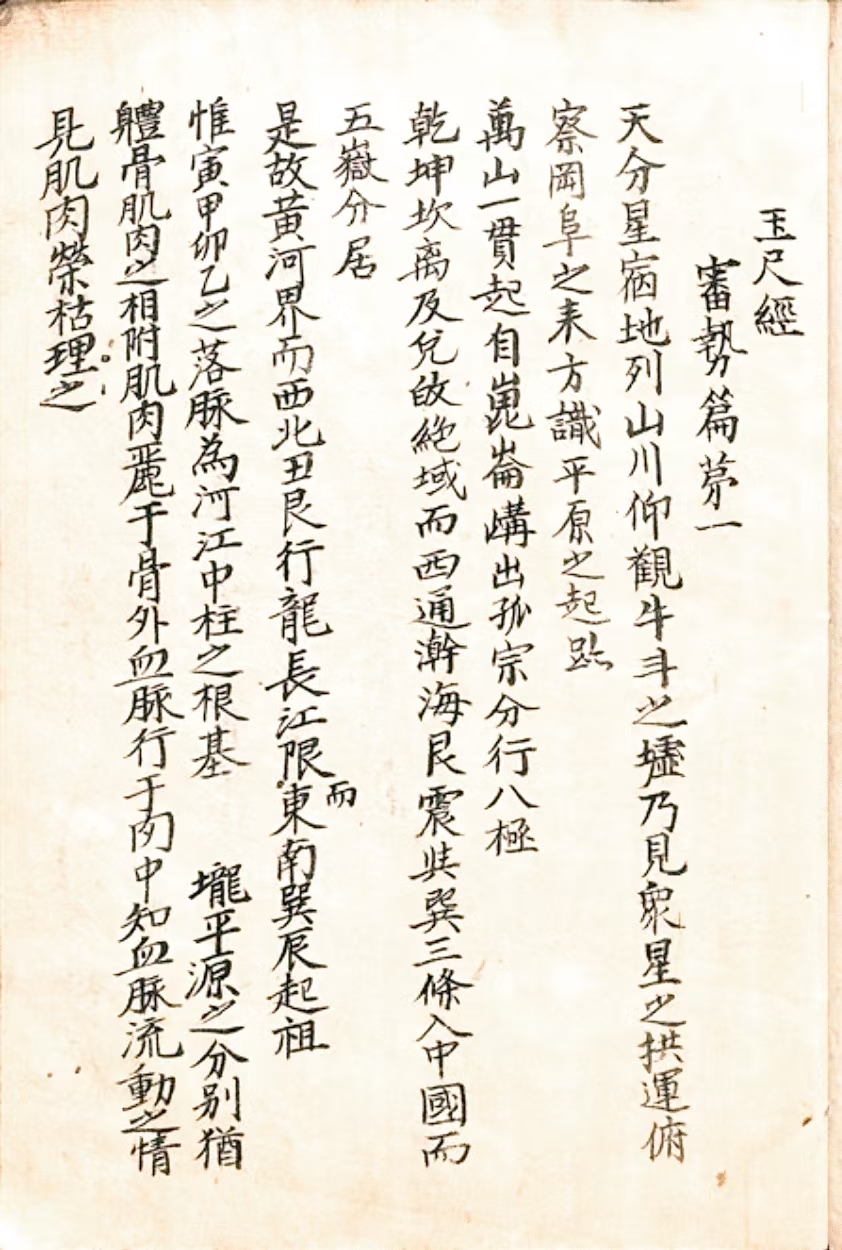 玉尺經
審勢篇苐一
天分星宿地列山川仰觀牛斗之墟乃見衆星之拱運俯
察岡阜之来方識平原之起跡
萬山一貫起自崑崙嶙出孤宗分行八極
乾坤坎离及兌故絶域而西通瀚海艮震共巽三條入中國而
五嶽分居
是故黄河界而西北丑艮行龍長江限而東南巽辰起祖
惟寅甲卯乙之落脉為河江中柱之根基 壠平源之分别猶
軆骨肌肉之相附肌肉麗于骨外血脉行于肉中知血脉流動之情
見肌肉榮枯理之